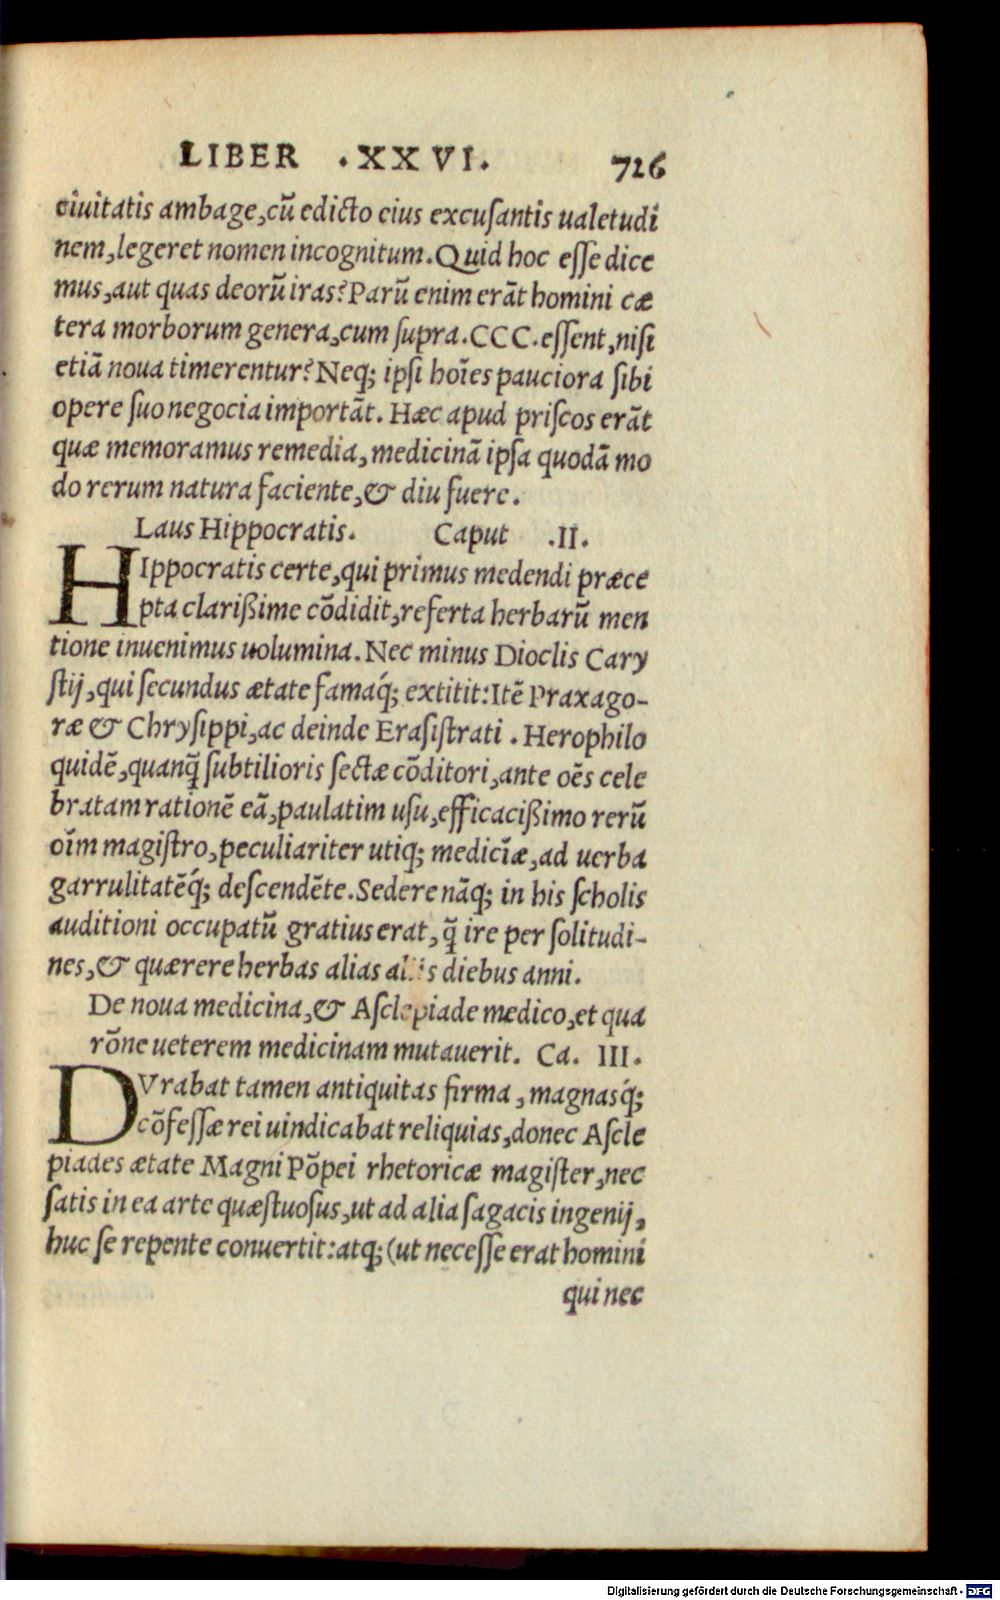 LIBER .XXVI. 726
ciuitatis ambage,cũ edicto cius excuſantis ualetudi
nem,legeret nomen incognitum.Quid hoc eſſe dice
mus,aut quas deorũ iras?Parũ enim erãt homini cæ
tera morborum genera,cum ſupra.CCC.eſſent,niſi
etiã noua timerentur?Neq; ipſi hoĩes pauciora ſibi
opere ſuo negocia importãt. Hæc apud priſcos erãt
quæ memoramus remedia,medicinã ipſa quodã mo
do rerum natura faciente,& diu fuere.
Laus Hippocratis. Caput .II.
HIppocratis certe,qui primus medendi præce
pta clarißime cõdidit,referta herbarũ men
tione inuenimus uolumina.Nec minus Dioclis Cary
ſtij,qui ſecundus ætate famaq́; extitit:Itẽ Praxago-
ræ & Chryſippi,ac deinde Eraſiſtrati . Herophilo
quidẽ,quanq̃ ſubtilioris ſectæ cõditori,ante oẽs cele
bratam rationẽ eã,paulatim uſu,efficacißimo rerũ
oĩm magiſtro,peculiariter utiq; medicĩæ,ad uerba
garrulitatẽq́; deſcendẽte.Sedere nãq; in his ſcholis
auditioni occupatũ gratius erat,q̃ ire per ſolitudi-
nes,& quærere herbas alias diebus anni.
De noua medicina,& Aſclepiade medico,et qua
rõne ueterem medicinam mutauerit. Ca. III.
DVrabat tamen antiquitas firma , magnasq́;
cõfeſſæ rei uindicabat reliquias,donec Aſcle
piades ætate Magni Põpei rhetoricæ magiſter,nec
ſatis in ea arte quæſtuoſus,ut ad alia ſagacis ingenij,
huc ſe repente conuertit:atq; (ut neceſſe erat homini
qui nec
Digitalisierung gefördert durch die Deutsche Forschungsgemeinschaft - DFG